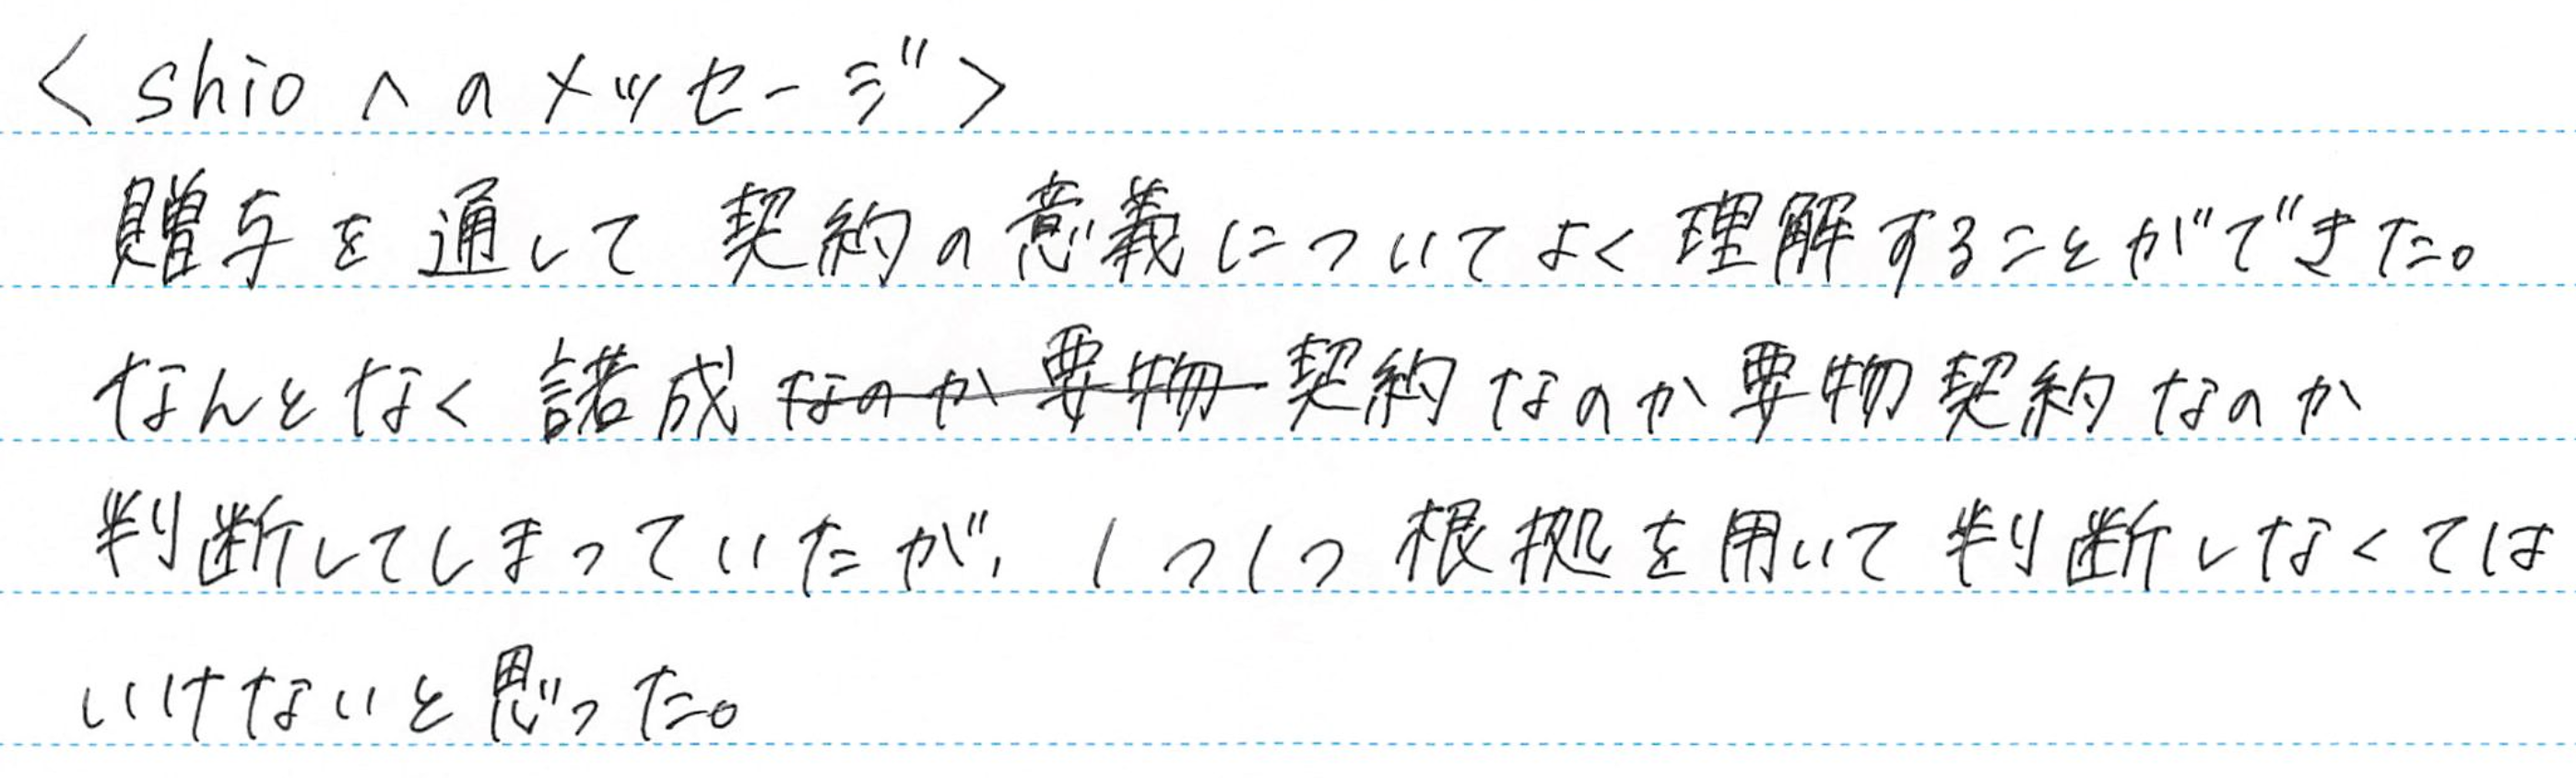 <shioへのメッセージ>
贈与を通して契約の意義についてよく理解することができた。
なんとなく諾成なのか要物契約なのか要物契約なのか
判断してしまっていたが，1つ1つ根拠を用いて判断しなくては
いけないと思った。